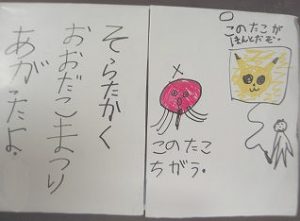 そらたかく
おおだこまつり
あがったよ。
このたこが
ほんとだぞ。
×
このたこ
ちがう。